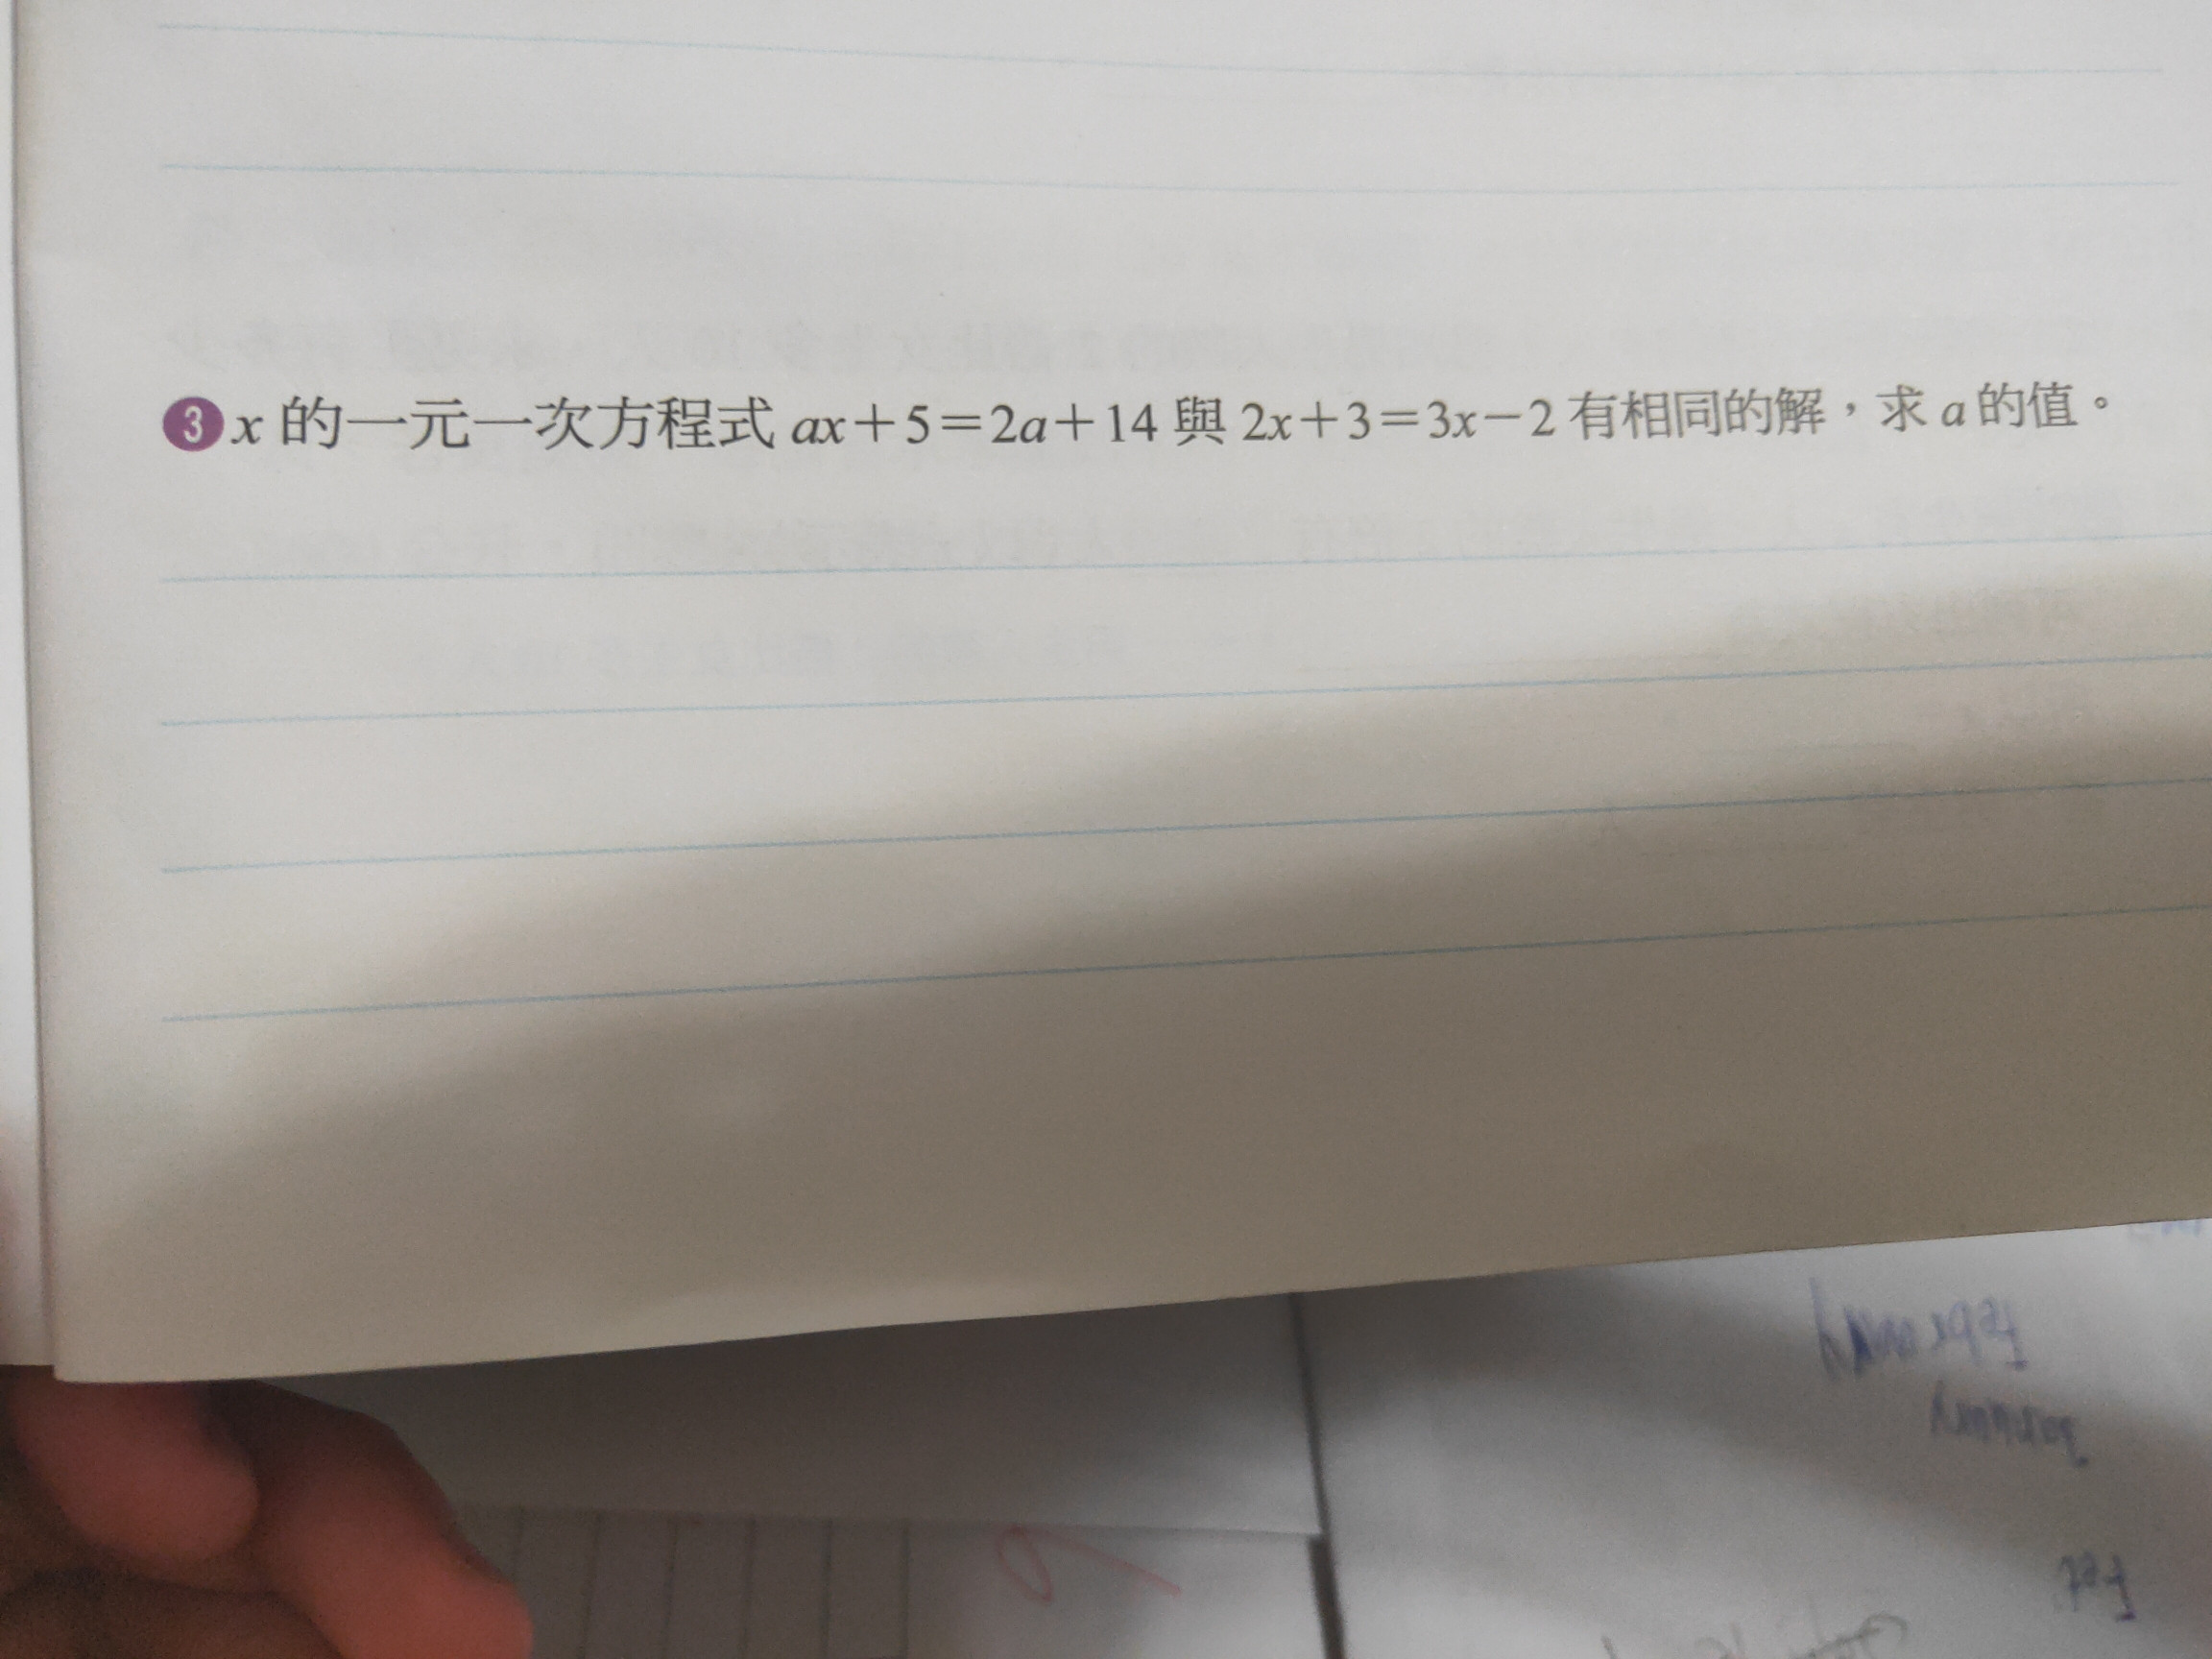 3 x 的一元一次方程式 ax+5=2a+14 與 2x+3=3x-2 有相同的解，求 a 的值。
February